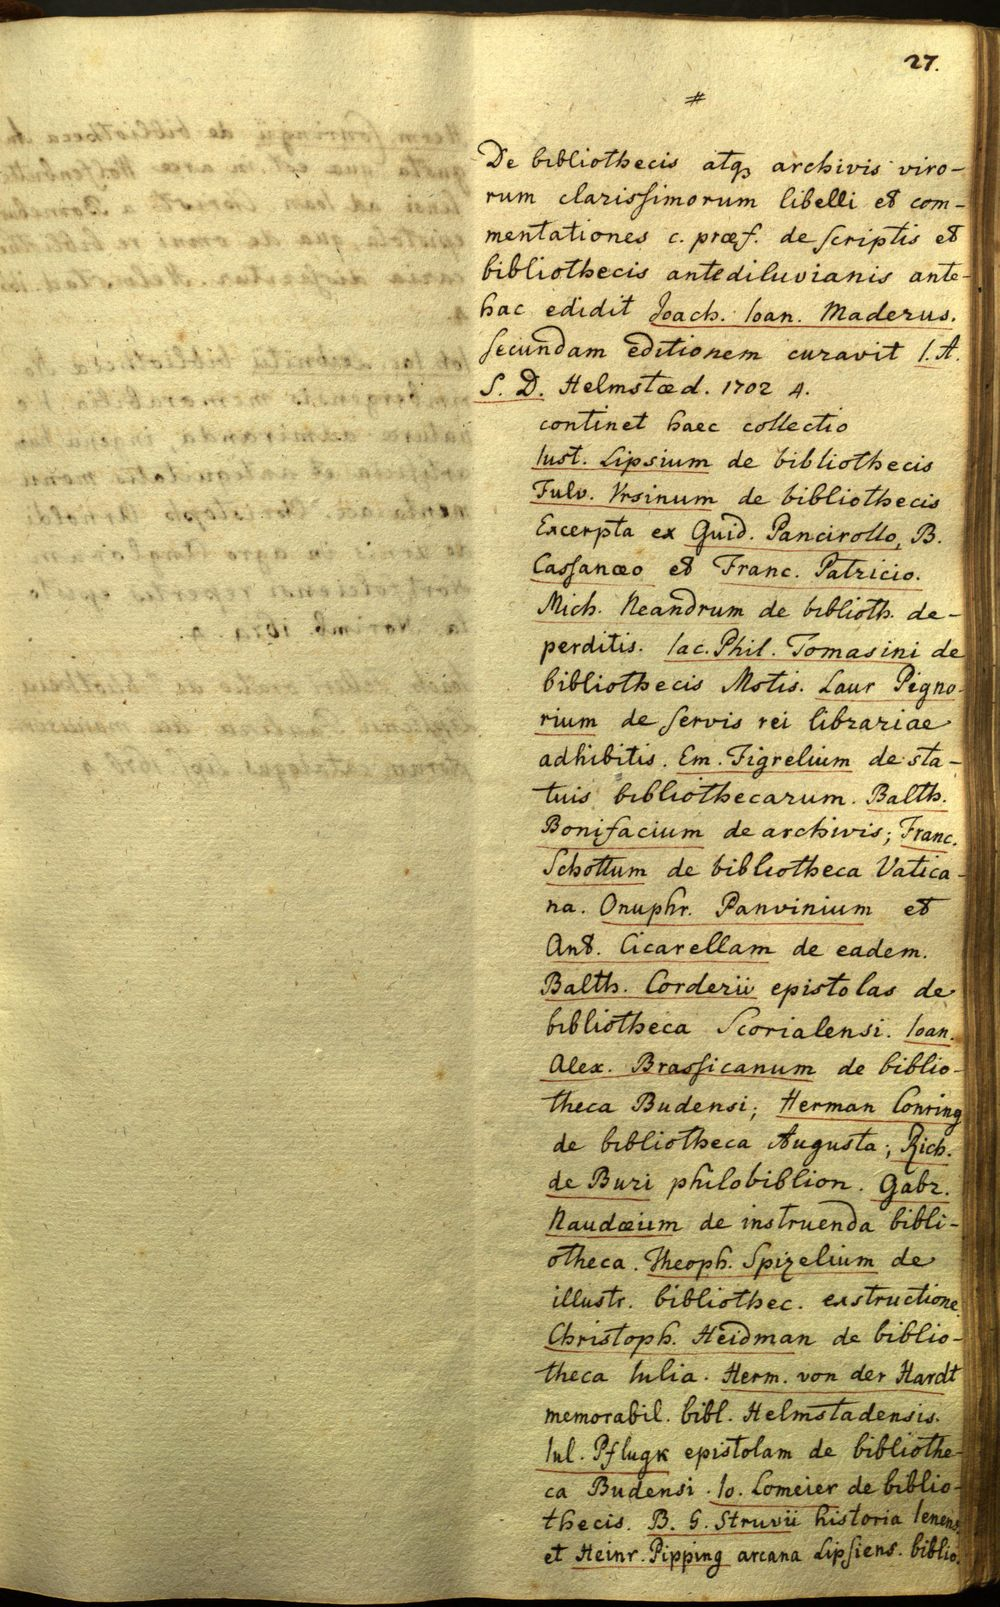 27.
#
De bibliothecis atq. archivis viro-
rum clarissimorum libelli et com-
mentationes c. præf. de scriptis et
bibliothecis antediluvianis ante-
hac edidit Joach. Ioan. Maderus.
secundam editionem curavit I. A.
S. D. Helmstæd. 1702 4.
continet haec collectio
Iust. Lipsium de bibliothecis
Fulv. Vrsinum de bibliothecis
Excerpta ex Guid. Pancirollo, B.
Cassanæo et Franc. Patricio.
Mich. Neandrum de biblioth. de-
perditis. Iac. Phil. Tomasini de
bibliothecis Mstis. Laur Pigno-
rium de servis rei librariae
adhibitis. Em. Figrelium de sta-
tuis bibliothecarum. Balth.
Bonifacium de archivis; Franc.
Schottum de bibliotheca Vatica-
na. Onuphr. Panvinium et
Ant. Cicarellam de eadem.
Balth. Corderii epistolas de
bibliotheca Scorialensi. Ioan.
Alex. Brassicanum de biblio-
theca Budensi; Herman Conring
de bibliotheca Augusta; Rich.
de Buri philobiblion. Gabr.
Naudæum de instruenda bibli-
otheca. Theoph. Spizelium de
illustr. bibliothec. exstructione.
Christoph. Heidman de biblio-
theca Iulia. Herm. von der Hardt
memorabil. bibl. Helmstadensis.
Iul. Pflugk epistolam de bibliothe-
ca Budensi. Io. Lomeier de biblio-
thecis. B. G. Struvii historia Ienens.
et Heinr. Pipping arcana Lipsiens. biblio.